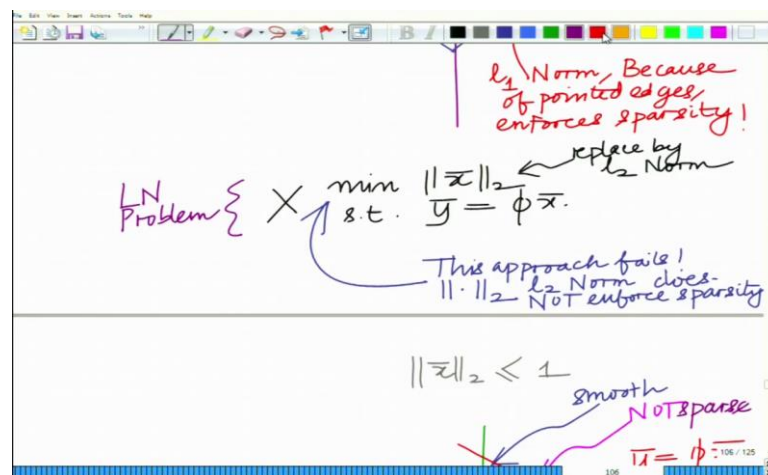 File Edit View Insert Actions Tools Help
B I
l₁ Norm, Because
of pointed edges,
enforces sparsity!
replace by
l₂ Norm
LN
Problem { X min ||x̅||₂
s.t. y̅ = ϕ x̅.
This approach fails!
||·||₂ l₂ Norm does
NOT enforce sparsity
||x̅||₂ ≤ 1
smooth
NOT sparse
y̅ = ϕ
106 / 125
106